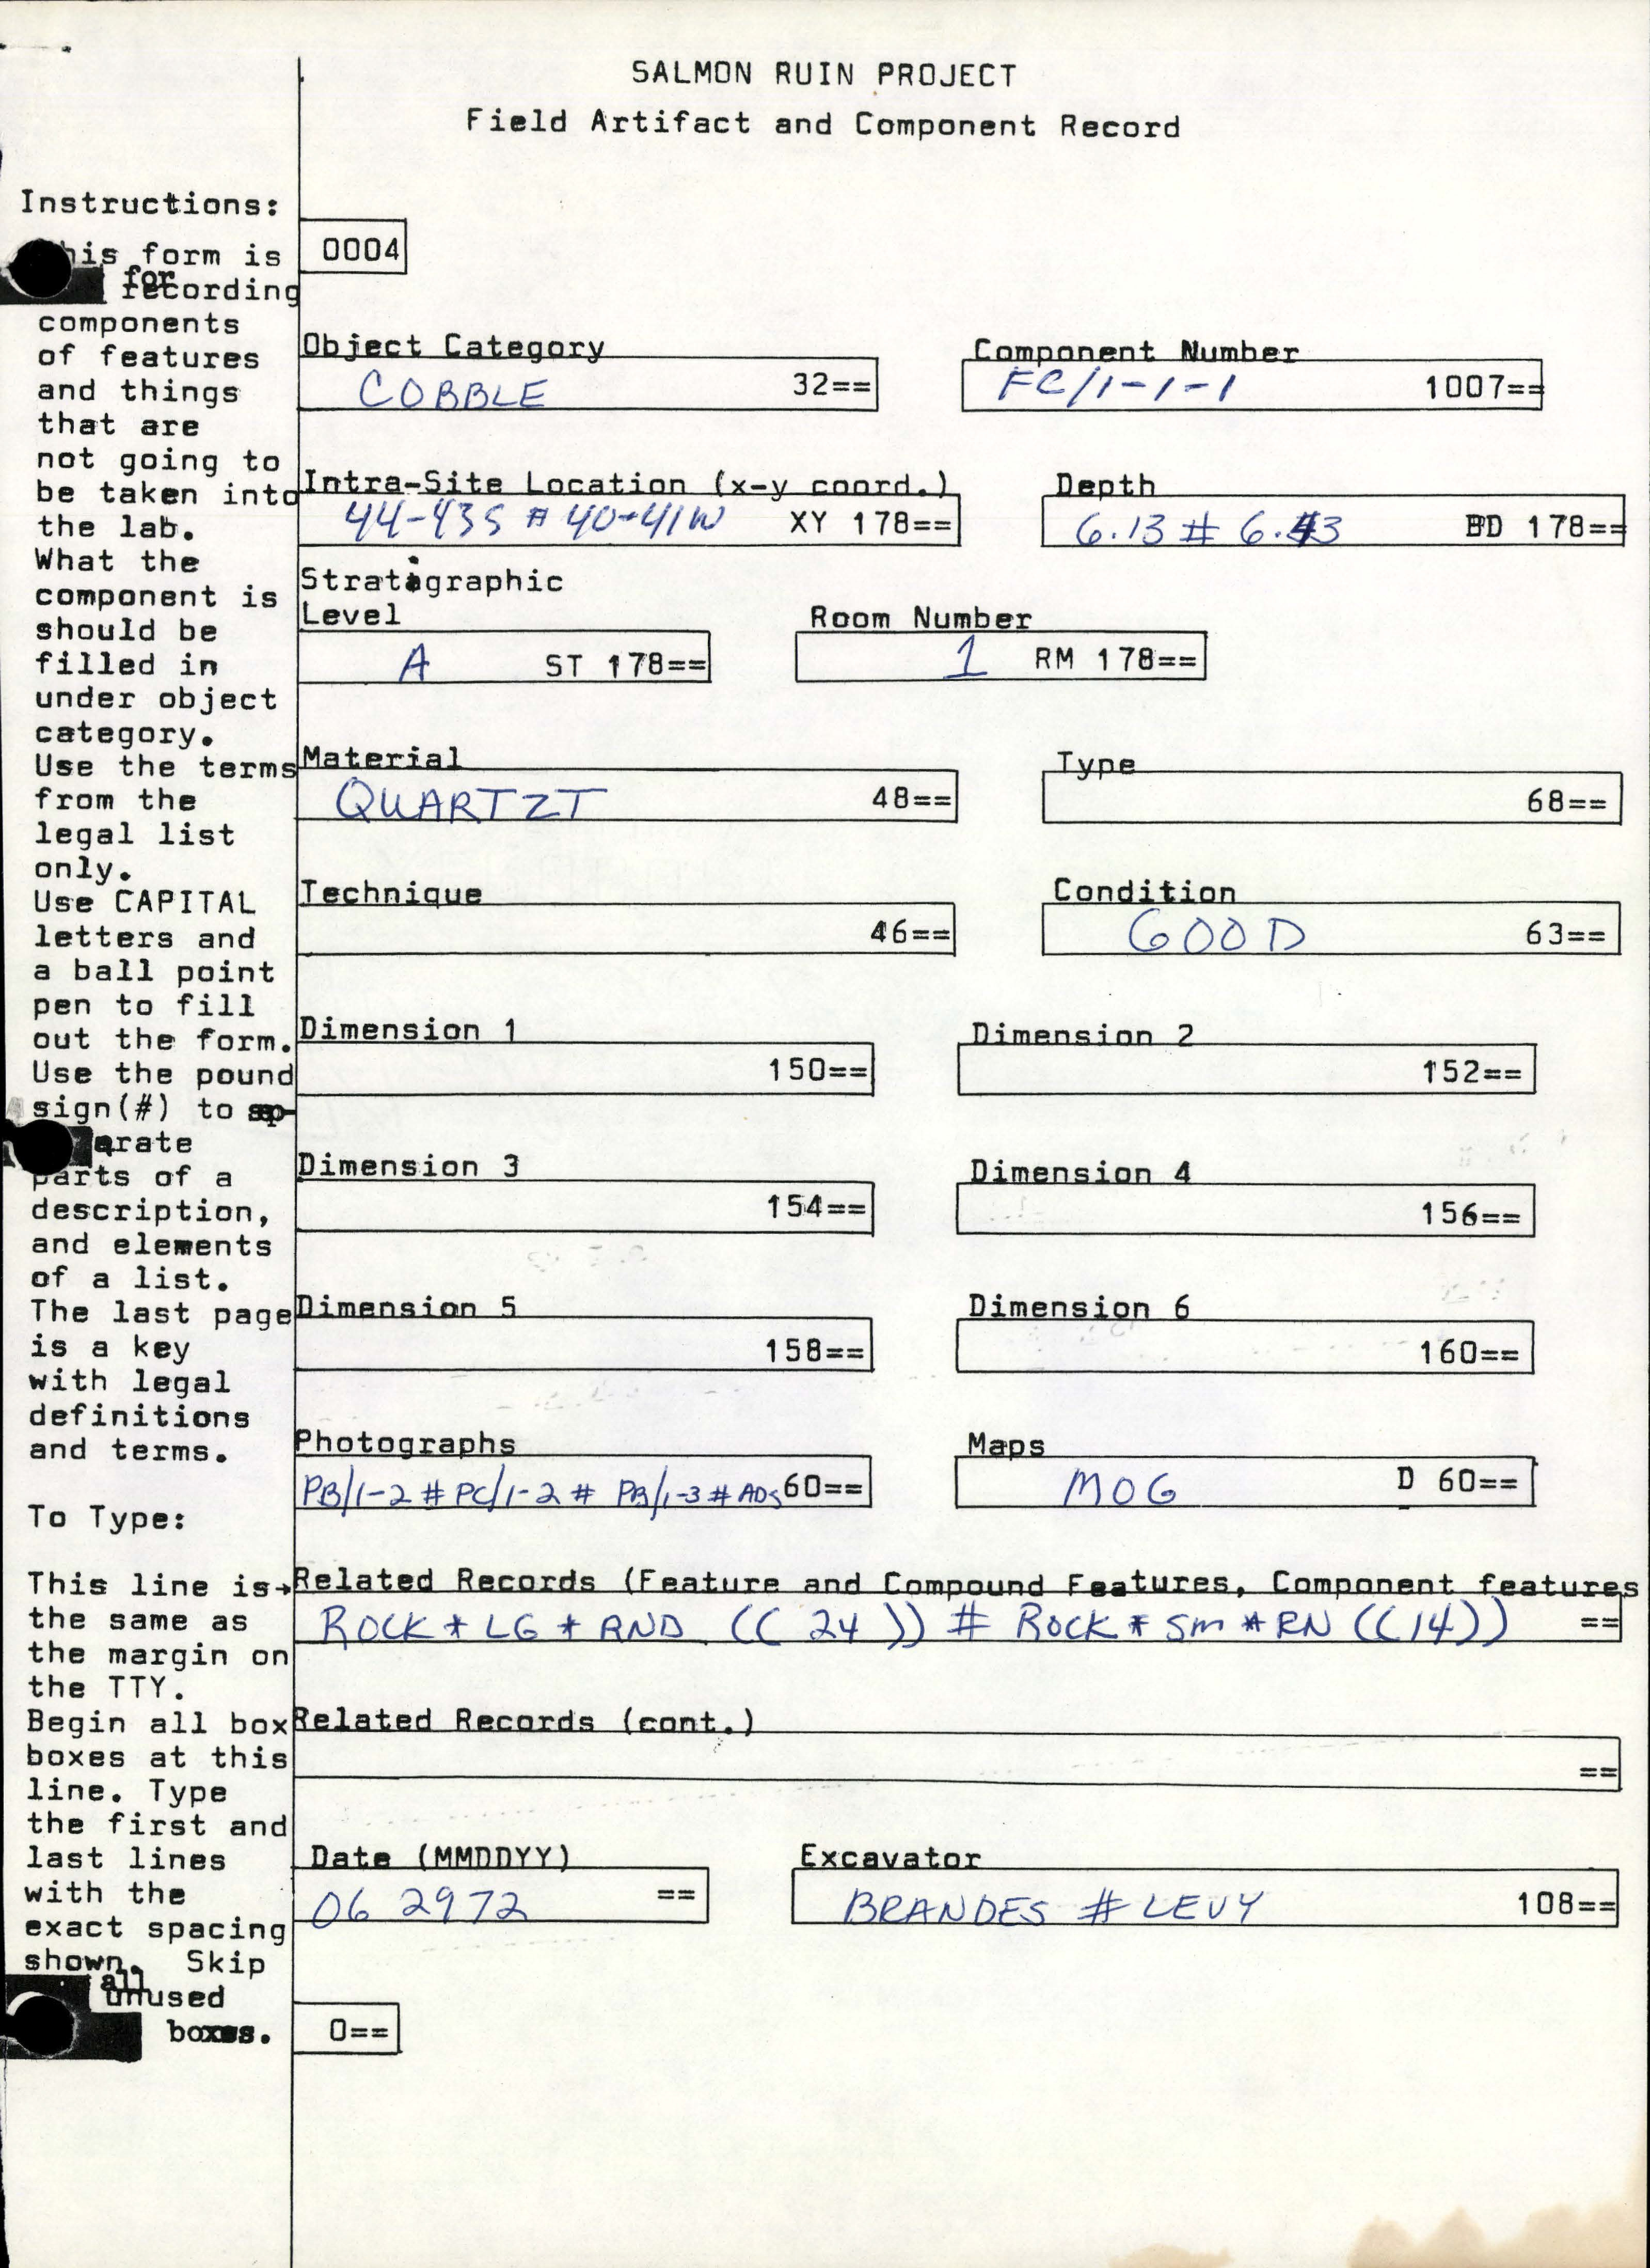 SALMON RUIN PROJECT
Field Artifact and Component Record
Instructions:
This form is
for
recording
components
of features
and things
that are
not going to
be taken into
the lab.
What the
component is
should be
filled in
under object
category.
Use the terms
from the
legal list
only.
Use CAPITAL
letters and
a ball point
pen to fill
out the form.
Use the pound
sign(#) to sep-
arate
parts of a
description,
and elements
of a list.
The last page
is a key
with legal
definitions
and terms.
To Type:
This line is→
the same as
the margin on
the TTY.
Begin all box
boxes at this
line. Type
the first and
last lines
with the
exact spacing
shown. Skip
all
unused
boxes.
0004
Object Category
COBBLE 32==
Component Number
FC/1-1-1 1007==
Intra-Site Location (x-y coord.)
44-43S # 40-41W XY 178==
Depth
6.13 # 6.43 BD 178==
Stratigraphic
Level
A ST 178==
Room Number
1 RM 178==
Material
QUARTZT 48==
Type
68==
Technique
46==
Condition
GOOD 63==
Dimension 1
150==
Dimension 2
152==
Dimension 3
154==
Dimension 4
156==
Dimension 5
158==
Dimension 6
160==
Photographs
PB/1-2 # PC/1-2 # PB/1-3 # ADS 60==
Maps
MOG D 60==
Related Records (Feature and Compound Features, Component features
ROCK * LG * RND ((24)) # ROCK * SM * RN ((14)) ==
Related Records (cont.)
==
Date (MMDDYY)
06 2972 ==
Excavator
BRANDES # LEVY 108==
0==